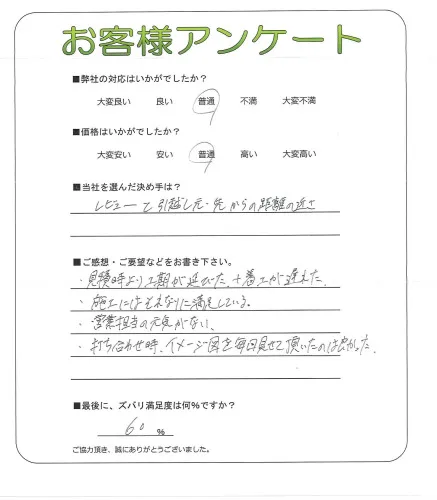 お客様アンケート
■弊社の対応はいかがでしたか？
大変良い 良い 普通 不満 大変不満
■価格はいかがでしたか？
大変安い 安い 普通 高い 大変高い
■当社を選んだ決め手は？
レビューと引越し元・先からの距離の近さ
■ご感想・ご要望などをお書き下さい。
・見積時より工期が延びた、+着工が遅れた、
・施工にはそれなりに満足している。
・営業担当の元気がない、
・打ち合わせ時、イメージ図を毎回見せて頂いたのは良かった、
■最後に、ズバリ満足度は何％ですか？
60 ％
ご協力頂き、誠にありがとうございました。